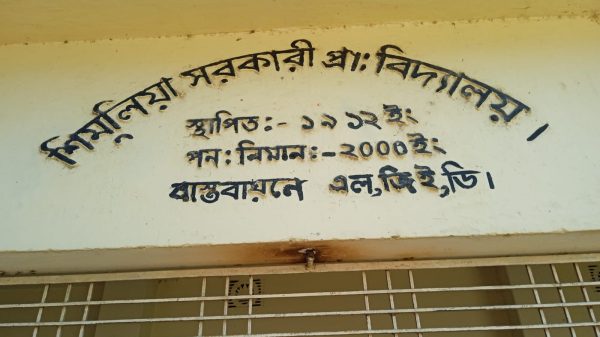 শিমূলিয়া সরকারী প্রা: বিদ্যালয়।
স্থাপিত:- ১৯১২ইং
পন: নিমান:-২০০০ইং
বাস্তবায়নে এল,জিই,ডি।